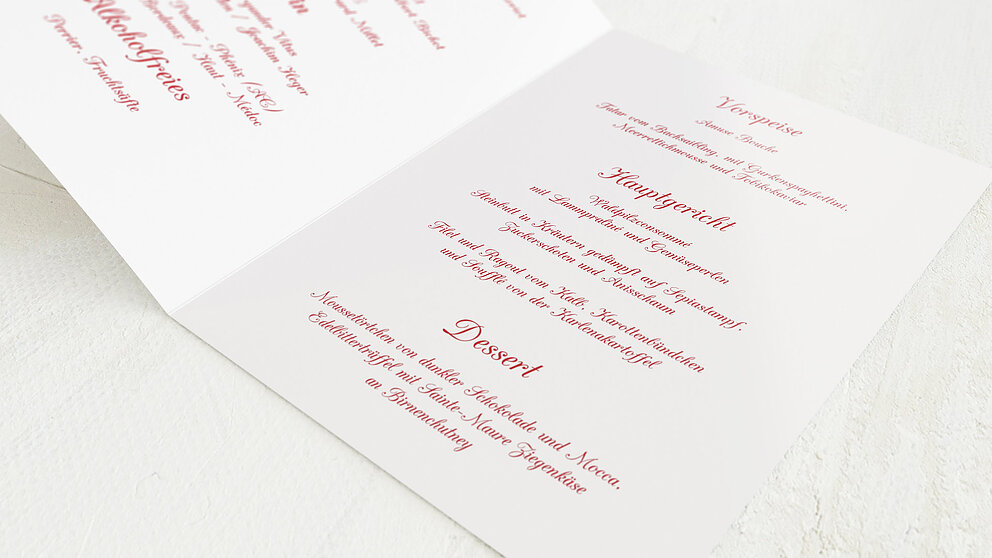 in
Vitus
/ Joachim Heger
Pessac - Phénix (AC)
Bordeaux / Haut - Médoc
Alkoholfreies
Perrier, Fruchtsäfte
Millet
Bichot
Vorspeise
Amuse Bouche
Tatar vom Bachsaibling, mit Gurkenspaghettini,
Meerrettichmousse und Tobikokaviar
Hauptgericht
Waldpilzconsommé
mit Lammpraliné und Gemüseperlen
Steinbutt in Kräutern gedämpft auf Sepiastampf,
Zuckerschoten und Anisschaum
Filet und Ragout vom Kalb, Karottenbündchen
und Soufflé von der Karlenakartoffel
Dessert
Moussetörtchen von dunkler Schokolade und Mocca,
Edelbittertrüffel mit Sainte-Maure Ziegenkäse
an Birnenchutney